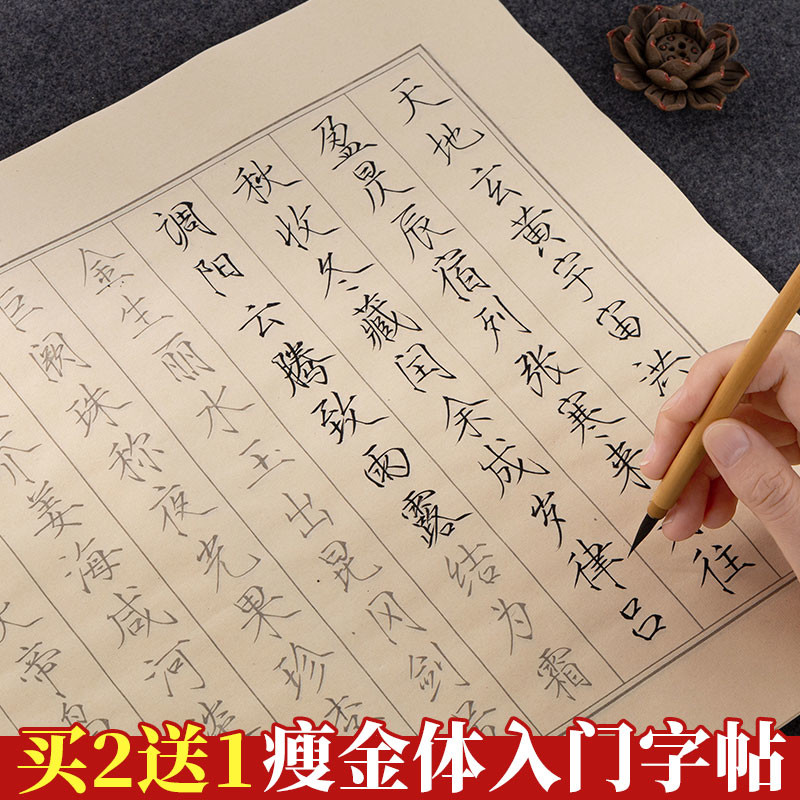 天地玄黄宇宙洪
盈昃辰宿列张寒来往
秋收冬藏闰余成岁律吕
调阳云腾致雨露结为霜
金生丽水玉出昆冈剑
巨阙珠称夜光果珍李
芥姜海咸河
火帝鸟
买2送1 瘦金体入门字帖